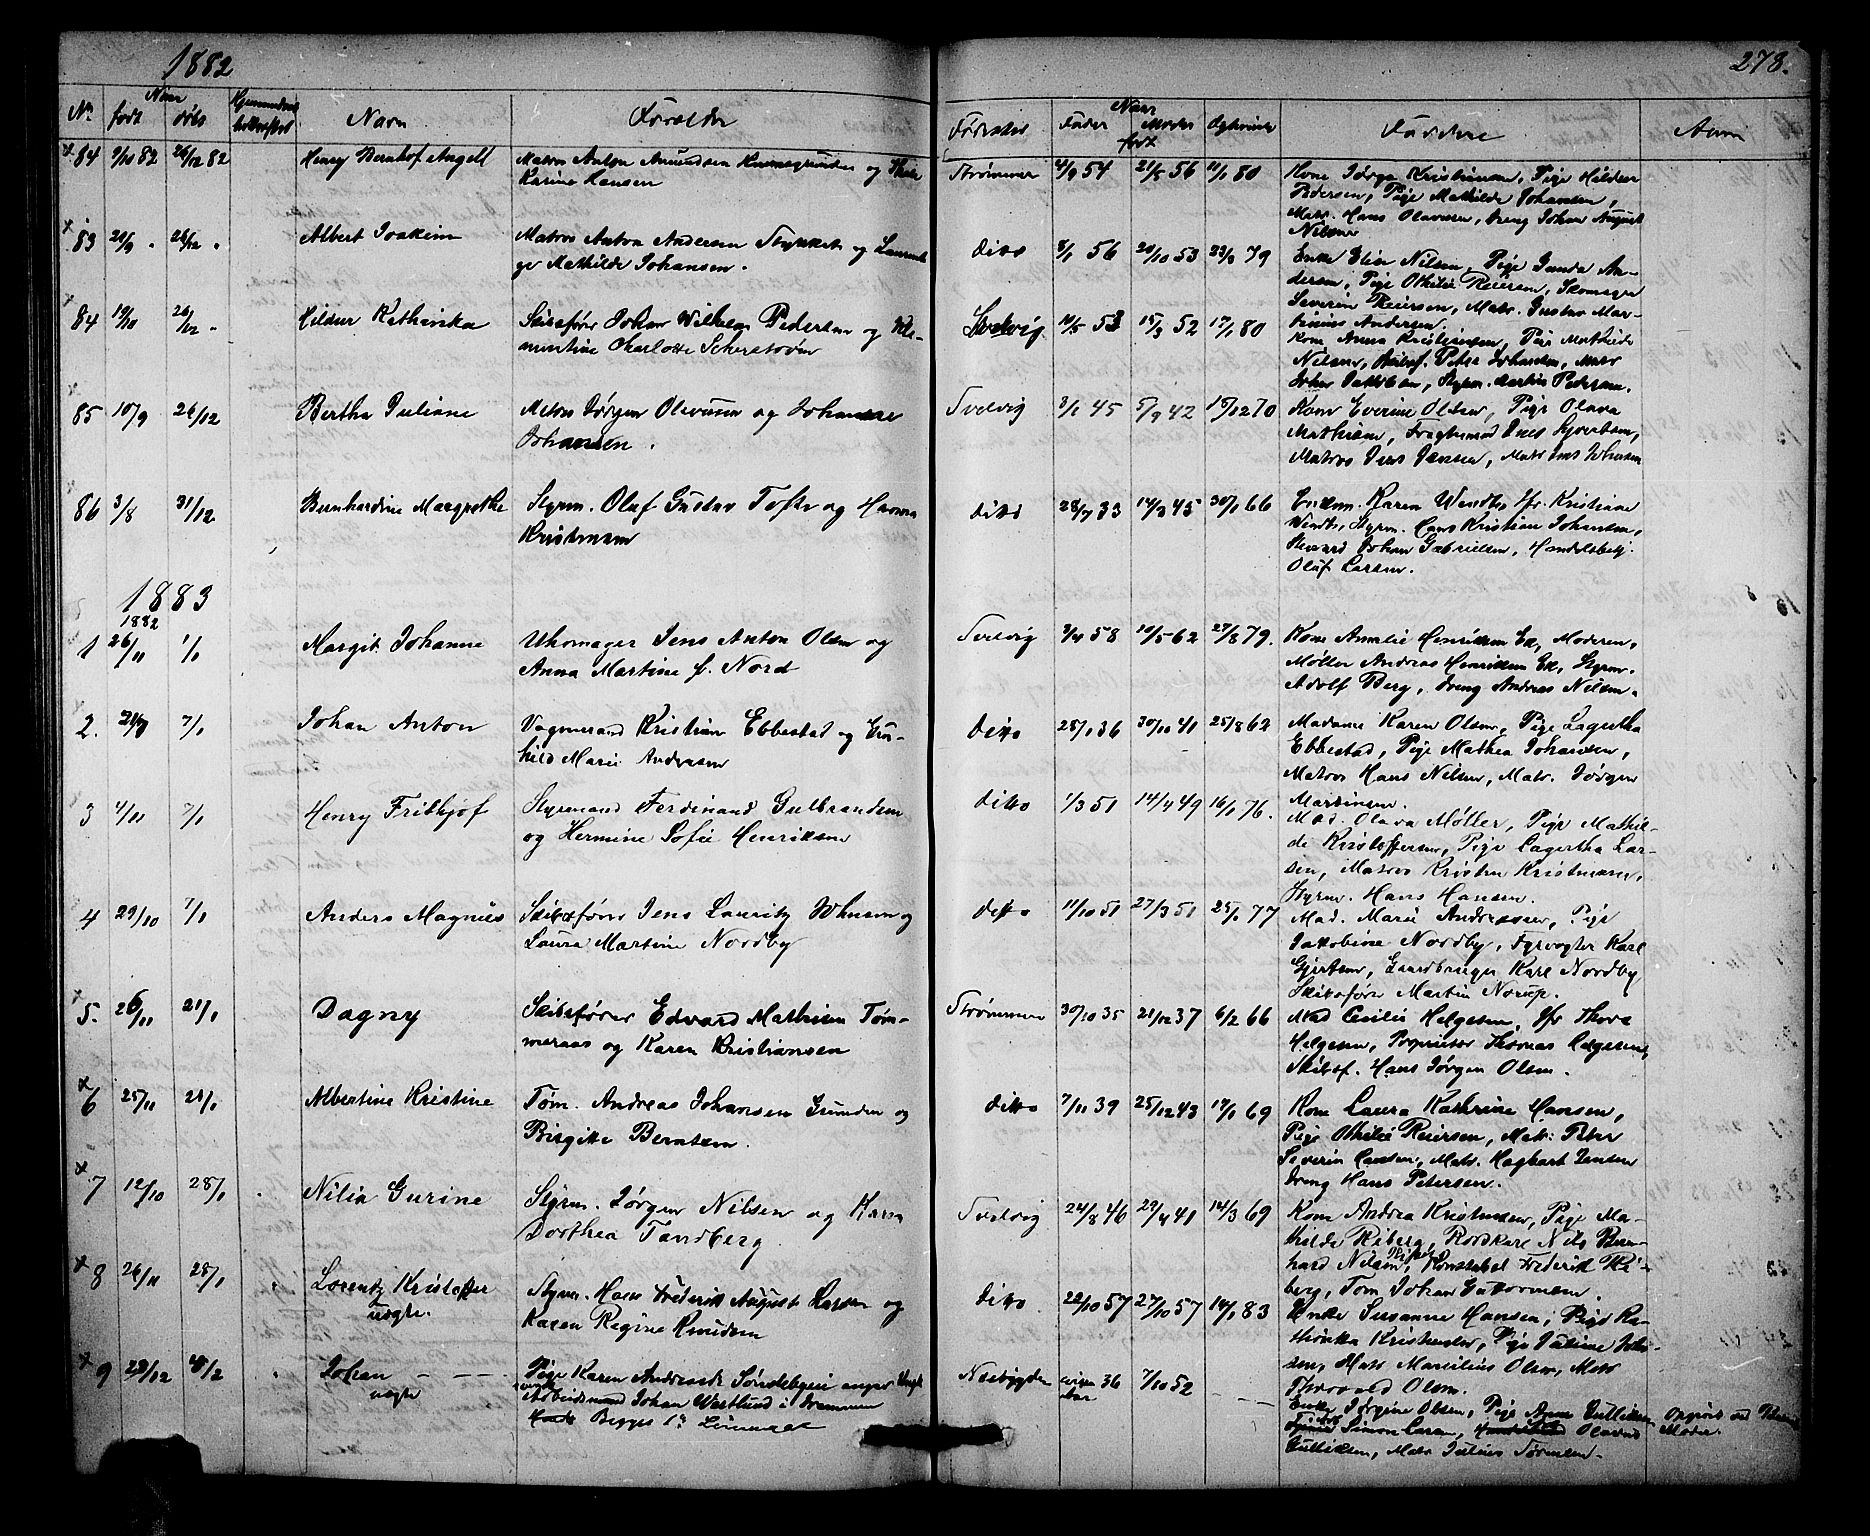 1882
278.
No
Naar
født
døbt
Navn
Forældre
Fødested
Naar
Fader
Moder
født
Egteviede
Faddere
Anm
84 9/10 82 26/12 82 Henry Bernhof Angell
Matros Anton Amundsen og
Karine Hansen
Strømmen 4/9 54 21/5 56 11/1 80
Kone Jørga Kristiansen, Pige Hilder
Pedersen, Pige Mathilde Johansen,
Matr. Hans Olavesen, Dreng Johan August
Nilsen
83 20/9 " 26/12 " Albert Joakim
Matros Anton Andersen og
ge Mathilde Johansen.
ditto 8/1 56 20/10 53 23/3 79
Enke Elise Nilsen, Pige Gunda An-
dersen, Pige Othilie Reiersen, Skomager
Severin Reiersen, Matr. Gustav Mar-
tinius Andersen.
84 19/10 26/12 " Hildur Katharika
Skibsfører Johan Wilhelm Pedersen og Kle-
mentine Charlotte
Svelvig 10/5 53 15/3 52 17/1 80
Kone Anna Kristiansen, Pige Mathilde
Nilsen, Skibsf. Peter Johansen, Matr
Johan Jakobsen, Styrm. Martin Pedersen.
85 10/9 26/12 Bertha Juliane
Matros Jørgen Olavesen og Johanne
Johansen.
Svelvig 3/1 45 5/9 42 15/12 70
Kone Everine Olsen, Pige Olava
Mathisen, Fragtemand Syvertsen,
Matros Jens Jensen, Matr Jens Johansen
86 3/8 31/12 Bernhardine Margrethe
Styrm. Oluf Gustav Tofte og Hanna
Kristensen
ditto 28/7 33 14/3 45 30/1 66
Enkem. Karen Wendt, Ifr. Kristiane
Wendt, Styrm. Hans Kristian Johansen,
Steward Johan Gabrielsen, Handelsbetj.
Oluf Larsen.
1883
1882
1 26/11 1/1 Margit Johanne
Uhrmager Jens Anton Olsen og
Anna Martine f. Nord
Svelvig 3/4 58 19/5 62 27/8 79.
Kone Amalie Henriksen Ek, Moderen,
Møller Andreas Henriksen Ek, Styrm.
Adolf Berg, Dreng Andreas Nilsen.
2. 7/1 Johan Anton
Vognmand Kristian Ebbestad og Gun-
hild Marie Andresen
Ditto 28/1 36 30/10 41 25/8 62
Madame Karen Olsen, Pige Lagertha
Ebbestad, Pige Mathea Johansen,
Matros Hans Nilsen, Matr. Jørgen
Martinsen.
3 4/11 7/1 Henry Frithjof
Styrmand Ferdinand Gulbrandsen
og Hermine Sofie Henriksen
ditto 1/3 51 14/4 49 16/1 76.
Mad. Olava Møller, Pige Mathil-
de Kristoffersen, Pige Lagertha Lar-
sen, Matros Kristen Kristensen,
Styrm. Hans Hansen.
4 29/10 7/1 Anders Magnus
Skibsfører Jens Lauritz Johnsen og
Laura Martine Nordby
ditto 11/10 51 27/3 51 25/1 77
Mad. Marie Andreassen, Pige
Jakobine Nordby, Fyrvogter Karl
Gjertsen, Gaardbruger Karl Nordby
Skibsfører Martin Norup.
5. 26/11 21/1 Dagny
Skibsfører Edvard Mathisen Tøm-
meraas og Karen Kristiansen
Strømmen 30/10 35 21/12 37 6/2 66
Mad Cecilie Helgesen, Ifr Thora
Helgesen, Proprietær Thomas Helgesen,
Skibsf. Hans Jørgen Olsen.
6 25/11 21/1 Albertine Kristine
Tøm. Andreas Johansen Grunden og
Birgitte Berntsen.
ditto 7/11 39 25/12 43 17/1 69
Kone Laura Kathrine Hansen,
Pige Othilie Reiersen, Matr: Peter
Severin Hansen, Matr. Hagbart Jensen
Dreng Hans Petersen.
7 12/10 28/1 Nilia Gurine
Styrm. Jørgen Nilsen og Karen
Dorthea Tandberg.
Svelvig 24/8 46 29/4 41 14/3 69
Kone Andrea Kristensen, Pige Ma-
thilde Riberg, Rorskarl Nils Bern-
hard Nilsen, Konstabel Frederik Ri-
berg, Tom Johan Guttormsen.
8 26/11 28/1 Lorentz Kristoffer
uegte.
Styrm. Hans Frederik August Larsen og
Karen Regine Knudsen
ditto 22/10 57 27/10 57 14/1 83
Enke Susanne Hansen, Pige Ka-
thrinka Kristensen, Pige Pauline Joh-
sen, Matr Marelius Olsen, Matr
Thorvald Olsen.
9 29/12 4/2 Johan
uegte
Pige Karen Andersdt Søndebyeie angiv.
Arbeidsmand Johan Westlund i Drammen
Begges 1ste Leiermaal
Nesbygden 36 7/10 52
Enke Jørgine Olsen, Pige Anne Gulliksen
Simon Larsen, Olaves
Gulliksen, Matr Julius Sørensen.
Opgivet ved
Moder.